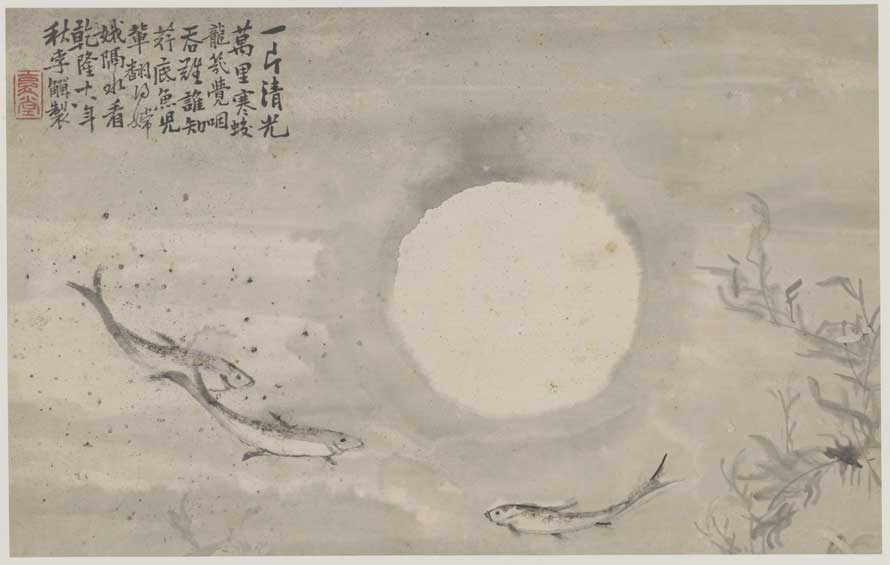 一片清光
萬里寒蛟
龍覺咽
吞難誰知
荇底魚兒
輩翻得嫦
娥隔水看
乾隆十八年
秋李鱓製